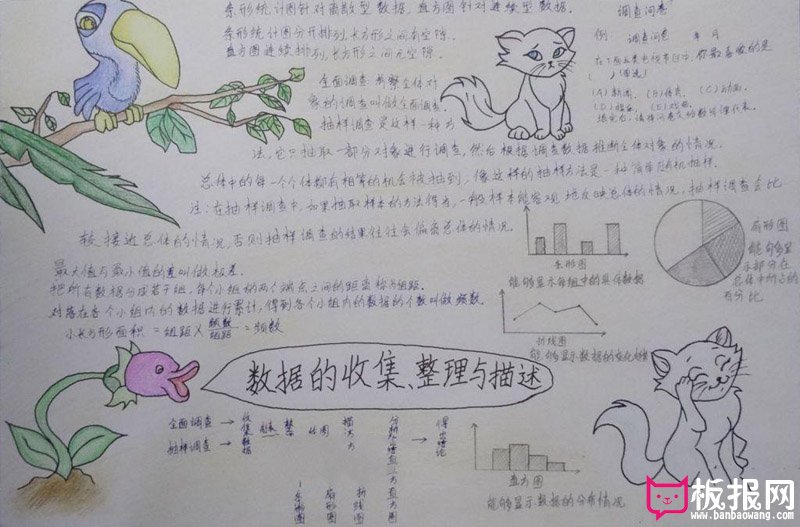 条形统计图针对离散型数据,直方图针对连续型数据.
条形统计图分开排列,长方形之间有空隙.
直方图连续排列,长方形之间无空隙.
调查问卷
例: 调查问卷 年 月
在下面五类电视节目中,你最喜欢的是
( )(单选)
(A)新闻, (B)体育, (C)动画,
(D)娱乐, (E)戏曲,
全面调查:考察全体对
象的调查叫做全面调查.
抽样调查是这样一种方
法,它只抽取一部分对象进行调查,然后根据调查数据推断全体对象的情况.
总体中的每一个个体都有相等的机会被抽到,像这样的抽样方法是一种简单随机抽样.
注:在抽样调查中,如果抽取样本的方法得当,一般样本能客观地反映总体的情况,抽样调查会比
较接近总体的情况,否则抽样调查的结果往往会偏离总体的情况.
最大值与最小值的差叫做极差.
把所有数据分成若干组,每个小组的两个端点之间的距离称为组距.
对落在各个小组内的数据进行累计,得到各个小组内的数据的个数叫做频数.
小长方形面积 = 组距 × 频数/组距 = 频数
条形图
能够显示每组中的具体数据
扇形图
能够显
示部分在
总体中所占的
百分比
折线图
能够显示数据的变化趋势
数据的收集、整理与描述
全面调查
抽样调查
收集数据
得出结论
条形图
扇形图
折线图
直方图
直方图
能够显示数据的分布情况
板报网
www.banbaowang.com